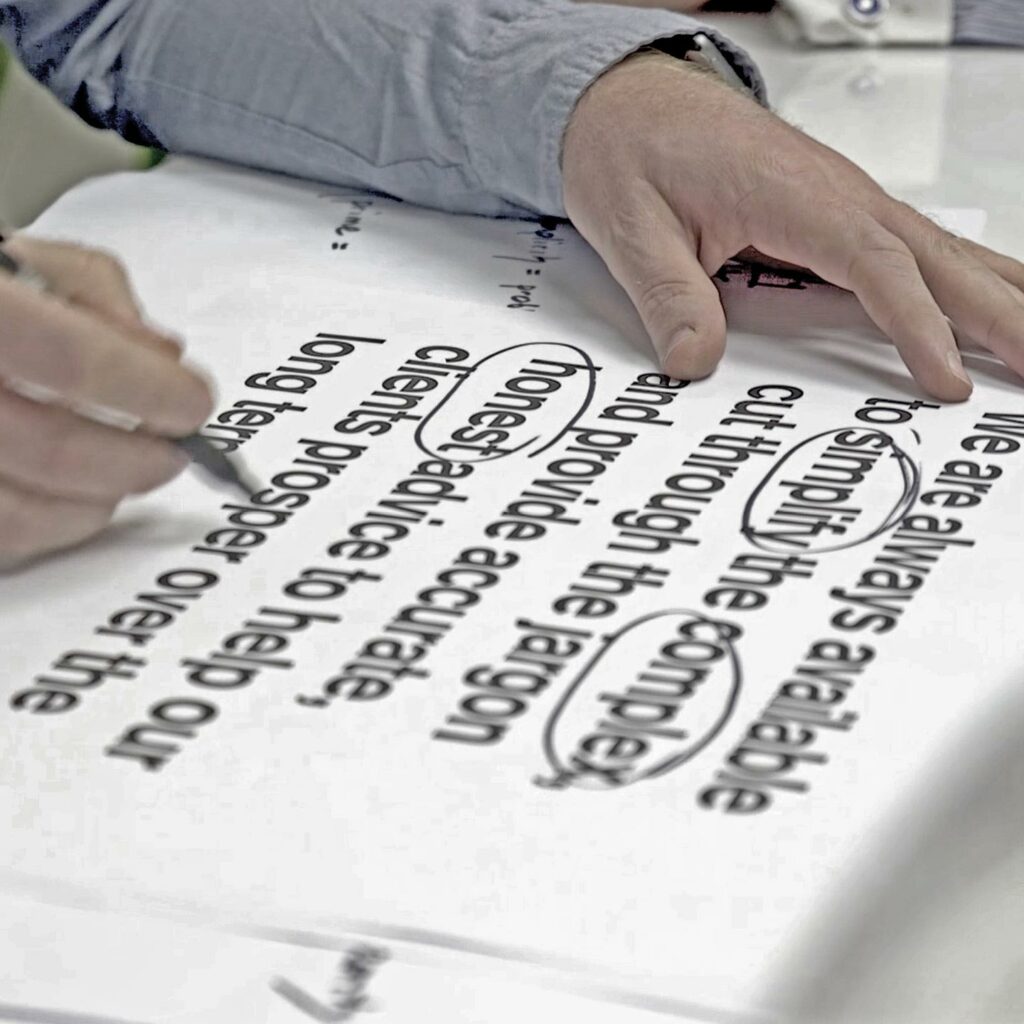 We are always available
to simplify the complex,
cut through the jargon
and provide accurate,
honest advice to help our
clients prosper over the
long term